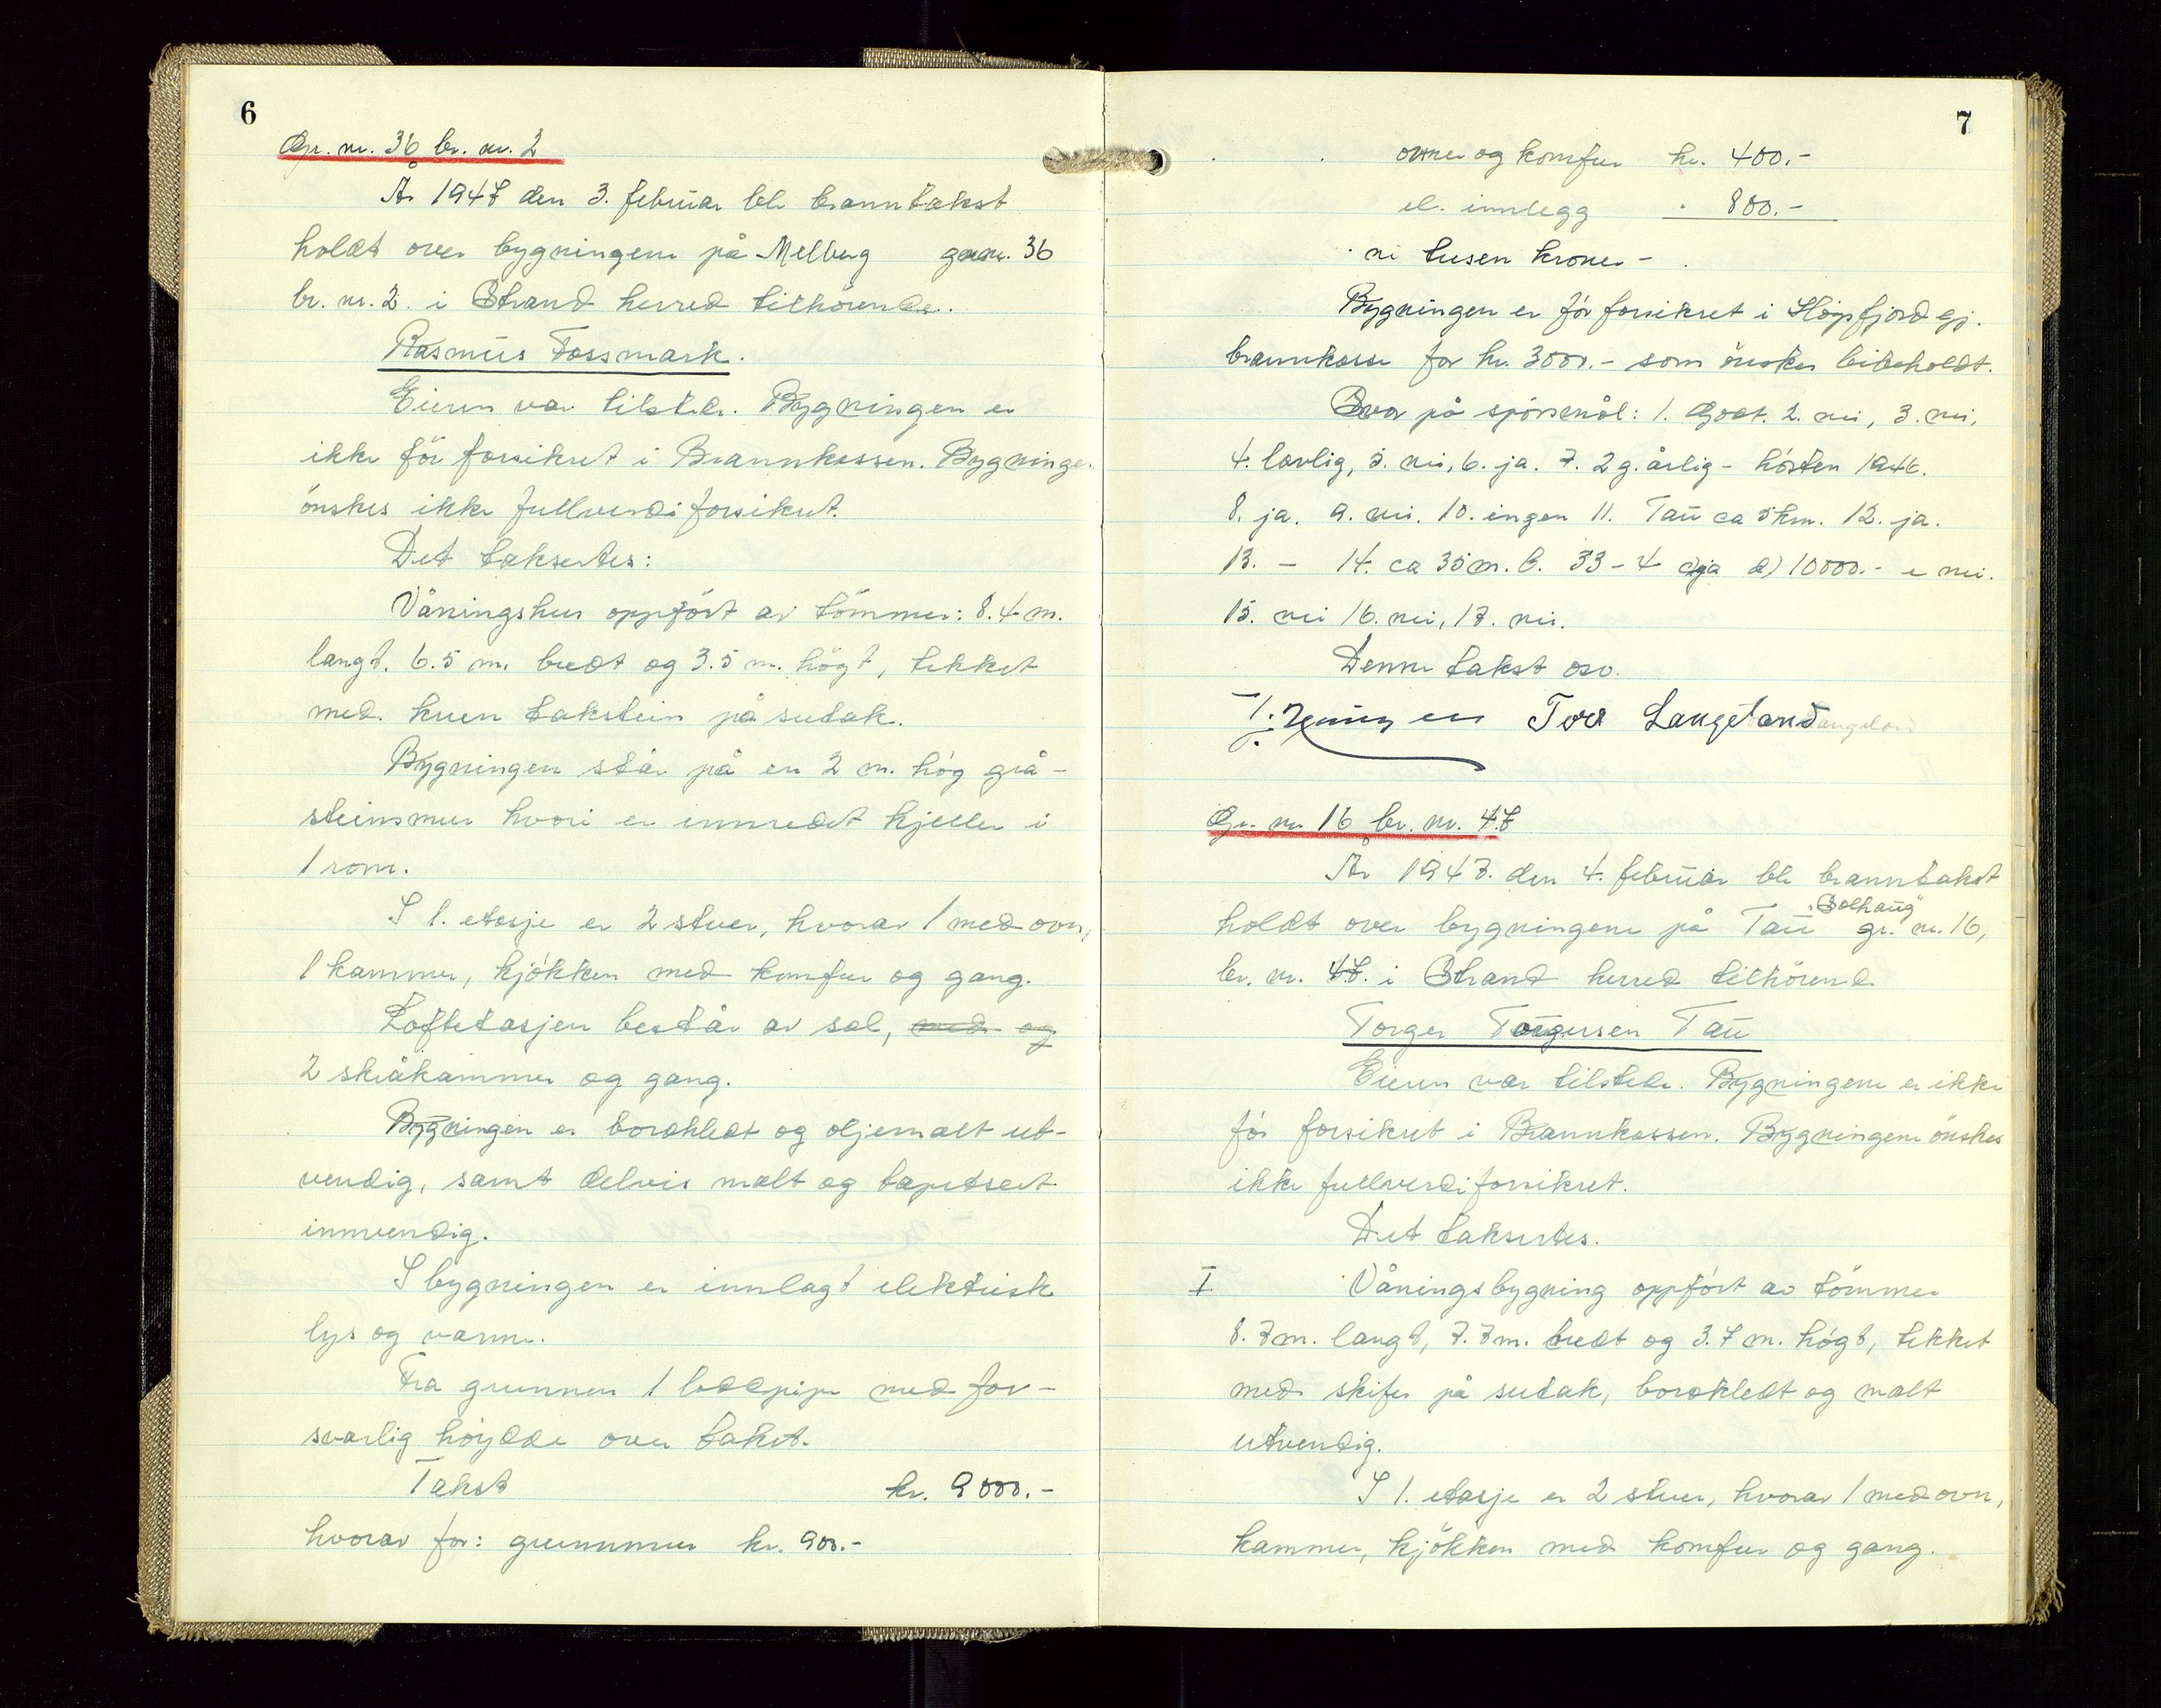 6
Gr. nr. 36 br. nr. 2
År 1947 den 3. februar ble branntakst
holdt over bygningene på Melberg gr.nr. 36
br. nr. 2. i Strand herred tilhörende.
Rasmus Fossmark.
Eieren var tilstede. Bygningen er
ikke för forsikret i Brannkassen. Bygningen
önskes ikke fullverdiforsikret.
Det taksertes:
Våningshus oppfört av tömmer: 8.4 m.
langt. 6.5 m. bredt og 3.5 m. högt, tekket
med krum takstein på sutak.
Bygningen står på en 2 m. hög grå-
steinsmur hvori er innredet kjeller i
1 rom.
I 1. etasje er 2 stuer, hvorav 1 med ovn,
1 kammer, kjökken med komfur og gang.
Loftetasjen består av sal, med og
2 skråkammer og gang.
Bygningen er bordkledt og oljemalt ut-
vendig, samt delvis malt og tapetsert
innvendig.
I bygningen er innlagt elektrisk
lys og varme.
Fra grunnen 1 loddpipe med for-
svarlig höydde over taket.
Takst kr. 9000.-
hvorav for: grunnmur kr. 900.-
7
ovner og komfur kr. 400.-
el. innlegg " 800.-
ni tusen kroner -
Bygningen er för forsikret i Högsfjord gj.
brannkasse for kr. 3000.- som önskes bibeholdt.
Svar på spörsmål: 1. Godt. 2. nei, 3. nei,
4. lovlig, 5. nei, 6. ja. 7. 2 g. årlig - hösten 1946.
8. ja. 9. nei. 10. ingen 11. Tau ca 5 km. 12. ja.
13. - 14. ca 35 m. b. 33-4 c) ja d) 10000.- e nei.
15. nei 16. nei, 17. nei.
Denne takst osv.
Tore Langeland
Gr. nr. 16 br. nr. 47
År 1947. den 4. februar ble branntakst
"Solhaug"
holdt over bygningene på Tau gr. nr. 16,
br. nr. 47. i Strand herred tilhörende
Torger Torgersen Tau
Eieren var tilstede. Bygningene er ikke
för forsikret i Brannkassen. Bygningene önskes
ikke fullverdiforsikret.
Det taksertes.
I Våningsbygning oppfört av tömmer
8.7 m. langt, 7.7 m. bredt og 3.7 m. högt, tekket
med skifer på sutak, bordkledt og malt
utvendig.
I 1. etasje er 2 stuer, hvorav 1 med ovn,
kammer, kjökken med komfur og gang.